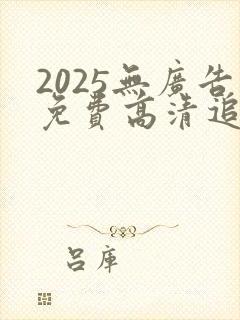 2025無廣告
免費高清追
呂庫